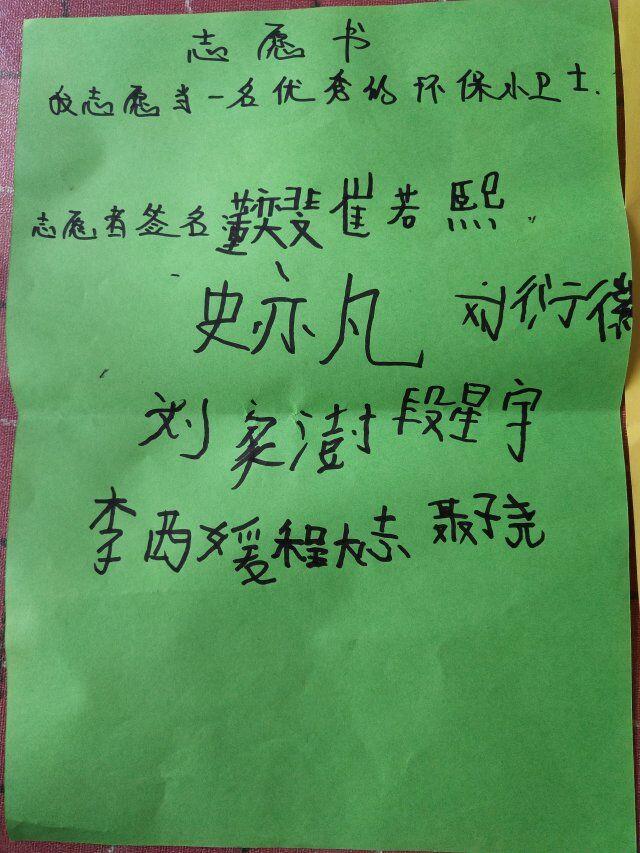 志愿书
我志愿当一名优秀的环保小卫士.
志愿者签名 董奕斐 崔若熙
史亦凡 刘衍徽
刘家澍 段星宇
李西媛 程大志 聂子尧